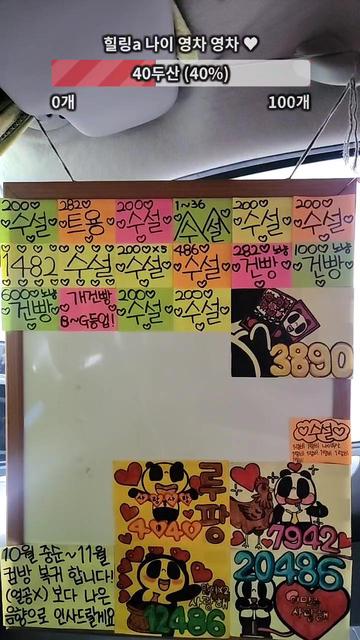 힐링a 나이 영차 영차 ♥
40두산 (40%)
0개 100개
200♡ 수설
282♡ 트용
200♡ 수설
1~36
200♡ 수설
200♡ 수설
1482
수설
200♡×5 수설
486♡ 수설
282♡ 노낭 건빵
100♡ 노낭 건빵
600♡ 노낭 건빵
개건빵
B~G등업!
200♡ 수설
200♡ 수설
3890
수설
루팡
4040
7942
12486
20486
10월 중순~11월
겜방 복귀 합니다!
보다 나은
음향으로 인사드릴게요